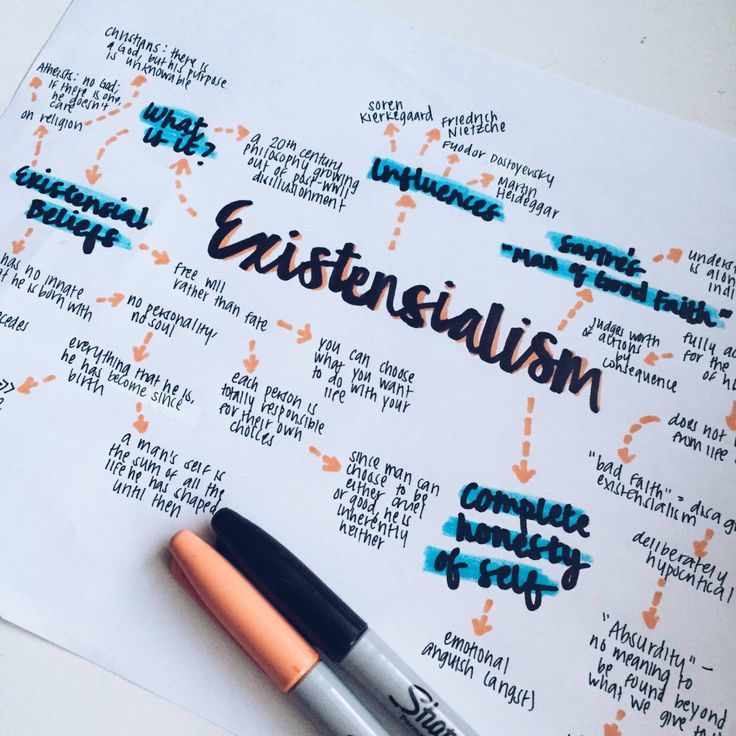 Christians: there is
a God, but his purpose
is unknowable
Atheists: no God;
if there is one,
he doesn't
care
on religion
What
is it?
a 20th century
philosophy growing
out of post-WWII
disillusionment
Existensial
Beliefs
Soren
Kierkegaard
Friedrich
Nietzche
Fyodor Dostoyevsky
Martin
Heideggar
Influences
Existensialism
Sartre's
"Man of Good Faith"
understa
is alon
indi
judges worth
of actions
by
consequence
fully ac
for the
of h
does not
from life
"bad faith" = disag
existensialism
deliberately
hypocritical
"Absurdity" –
no meaning to
be found beyond
what we give to t
has no innate
at he is born with
cedes
no personality/
no soul
free will
rather than fate
you can choose
what you want
to do with your
life
each person is
totally responsible
for their own
choices
since man can
choose to be
either cruel
or good, he is
inherently
neither
everything that he is,
he has become since
birth
>>
e
a man's self is
the sum of all the
life he has shaped
until then
Complete
honesty
of self
emotional
anguish (angst)
Sharp